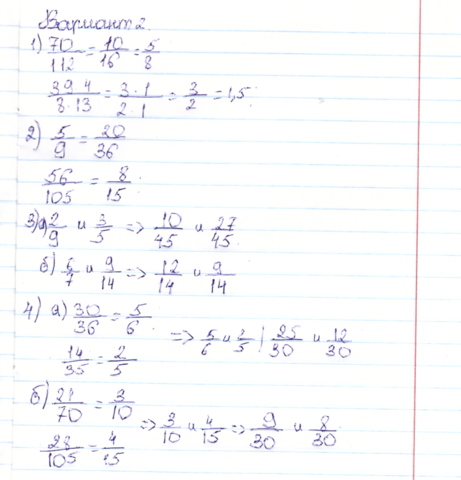 Вариант 2
1) 70/112 = 10/16 = 5/8
39 4/8·13 = 3·1/2·1 = 3/2 = 1,5
2) 5/9 = 20/36
56/105 = 8/15
3) а) 2/9 и 3/5 => 10/45 и 27/45
б) 6/7 и 9/14 => 12/14 и 9/14
4) а) 30/36 = 5/6
14/35 = 2/5
=> 5/6 и 2/5 | 25/30 и 12/30
б) 21/70 = 3/10
28/105 = 4/15
=> 3/10 и 4/15 => 9/30 и 8/30